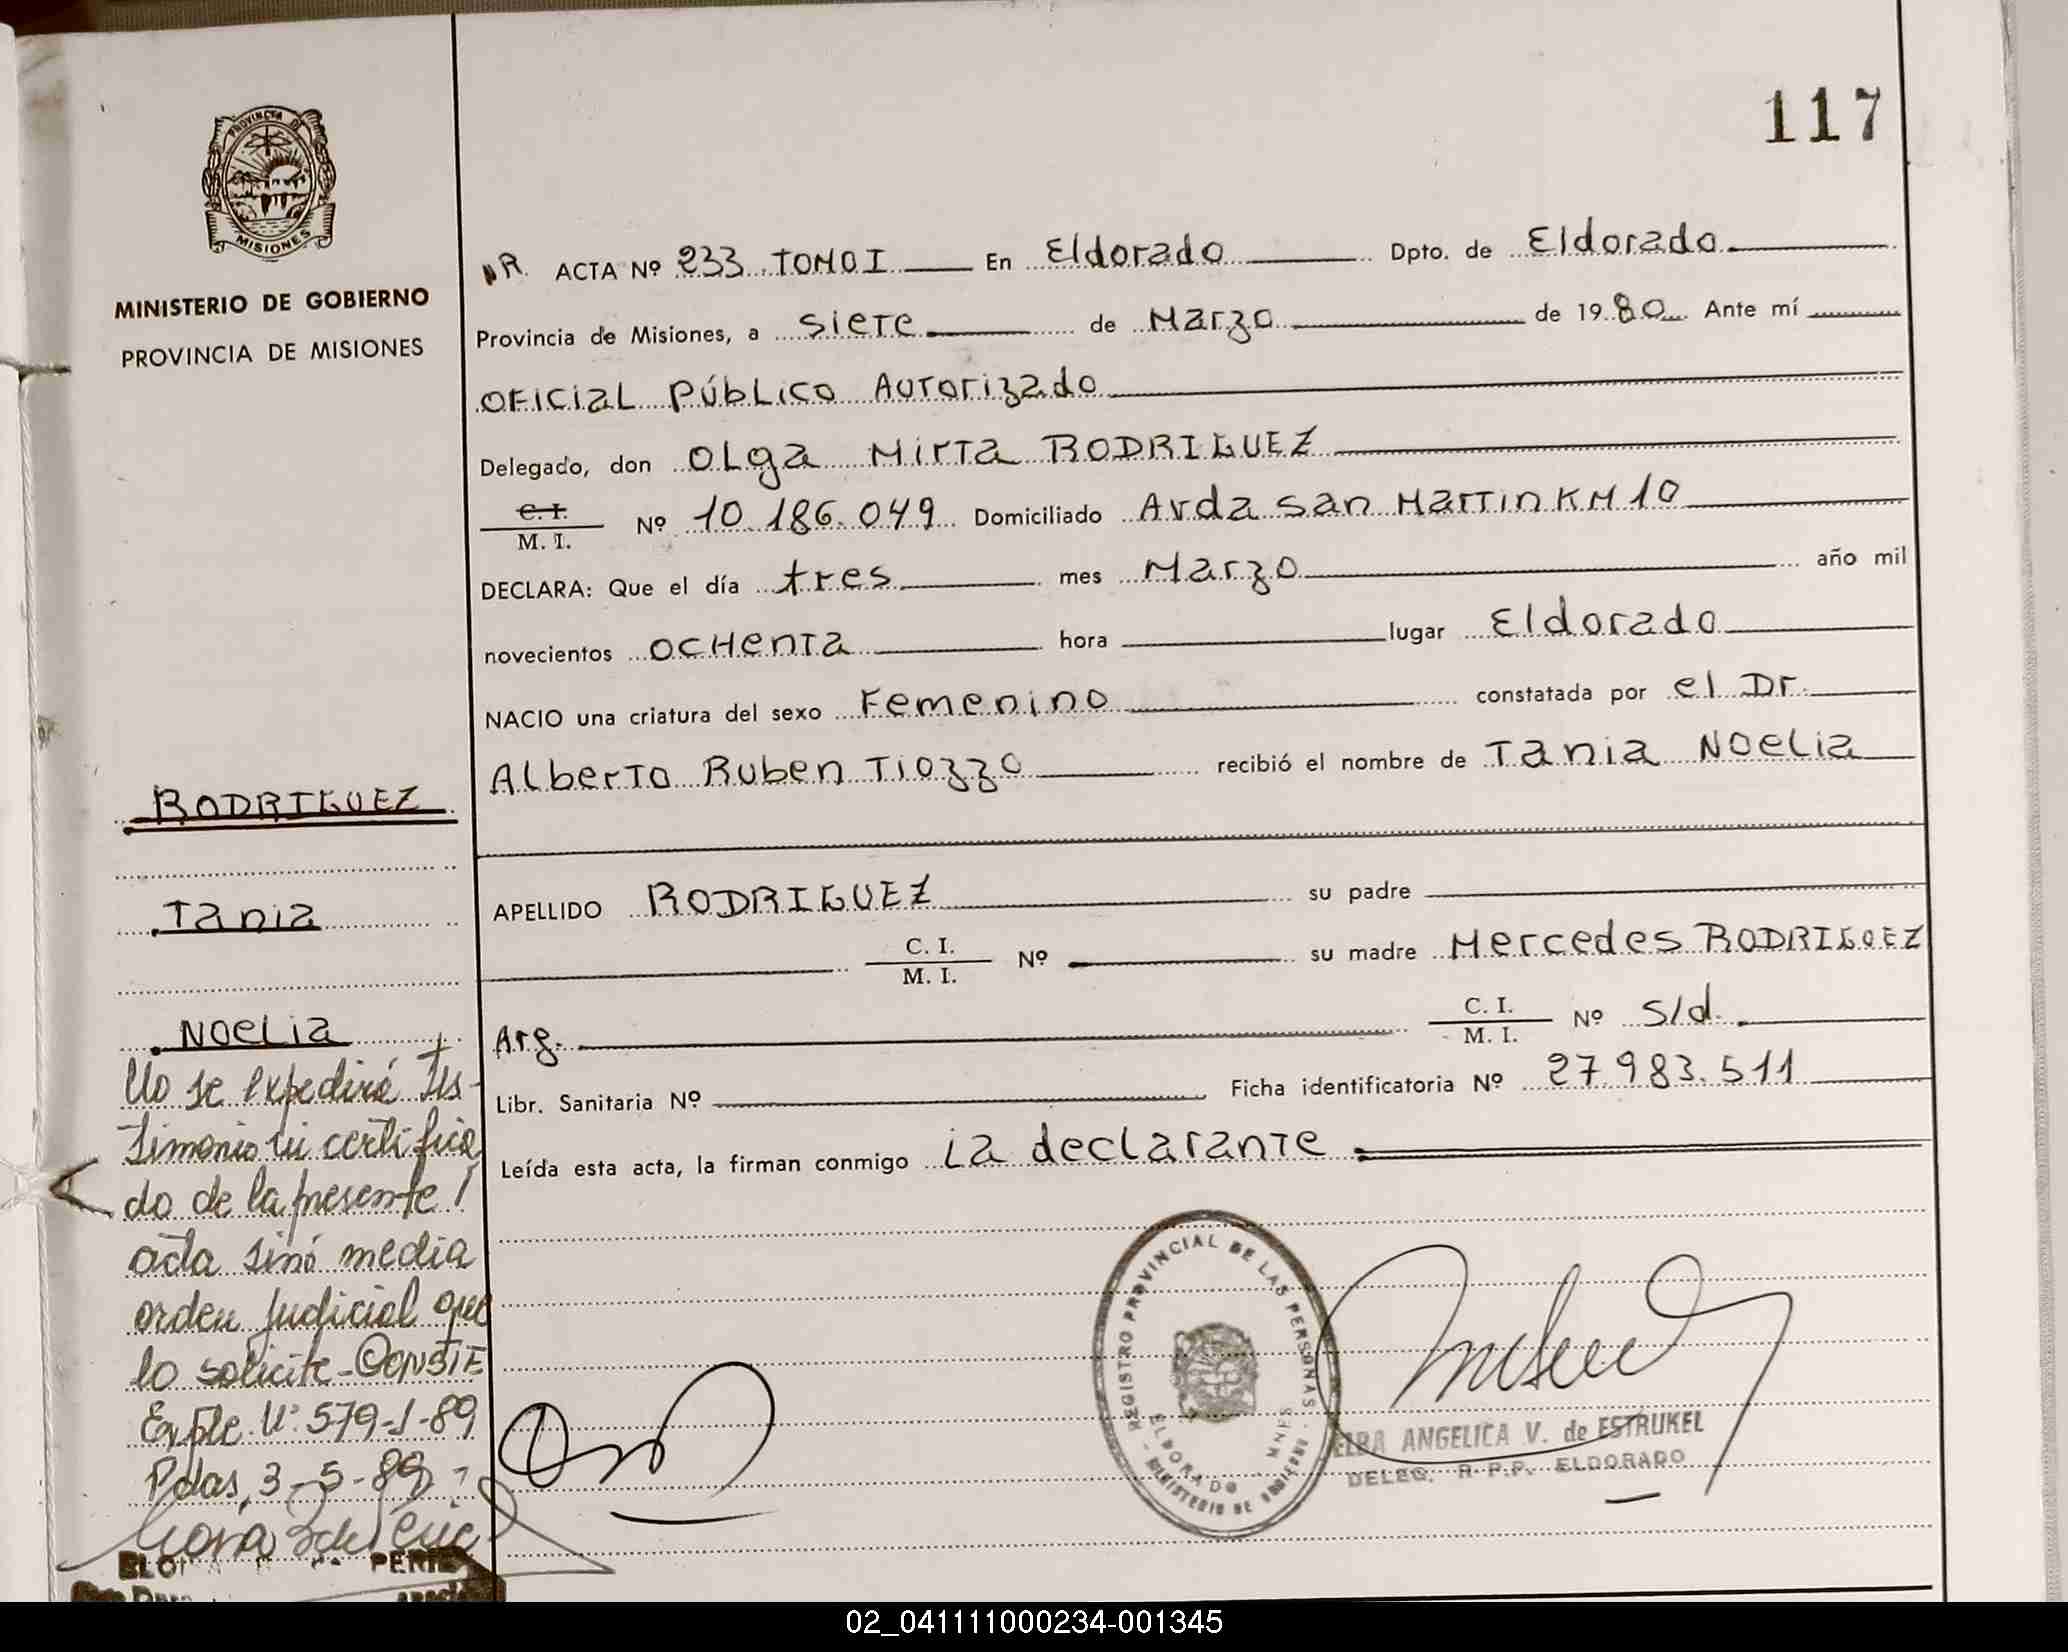 117
PROVINCIA DE
MISIONES
MINISTERIO DE GOBIERNO
PROVINCIA DE MISIONES
R. ACTA Nº 233 TOMO I En Eldorado Dpto. de Eldorado
Provincia de Misiones, a siete de Marzo de 1980 Ante mí
Oficial Público Autorizado
Delegado, don Olga Mirta RODRIGUEZ
C. I.
M. I. Nº 10.186.049 Domiciliado Avda San Martin KM 10
DECLARA: Que el día tres mes Marzo año mil
novecientos ochenta hora lugar Eldorado
NACIO una criatura del sexo Femenino constatada por el Dr.
Alberto Ruben Tiozzo recibió el nombre de Tania Noelia
APELLIDO RODRIGUEZ su padre
C. I.
M. I. Nº su madre Mercedes RODRIGUEZ
Arg. C. I.
M. I. Nº s/d.
Libr. Sanitaria Nº Ficha identificatoria Nº 27.983.511
Leída esta acta, la firman conmigo la declarante
RODRIGUEZ
Tania
Noelia
No se expedirá tes-
timonio ni certifica
do de la presente
acta sinó media
orden judicial que
lo solicite - CONSTE
Expte. Nº 579-J-89
Pdas, 3-5-89
REGISTRO PROVINCIAL DE LAS PERSONAS
ELDORADO MNES
MINISTERIO DE GOBIERNO
ANGELICA V. de ESTRUKEL
DELEG. R.P.P. ELDORADO
02_041111000234-001345